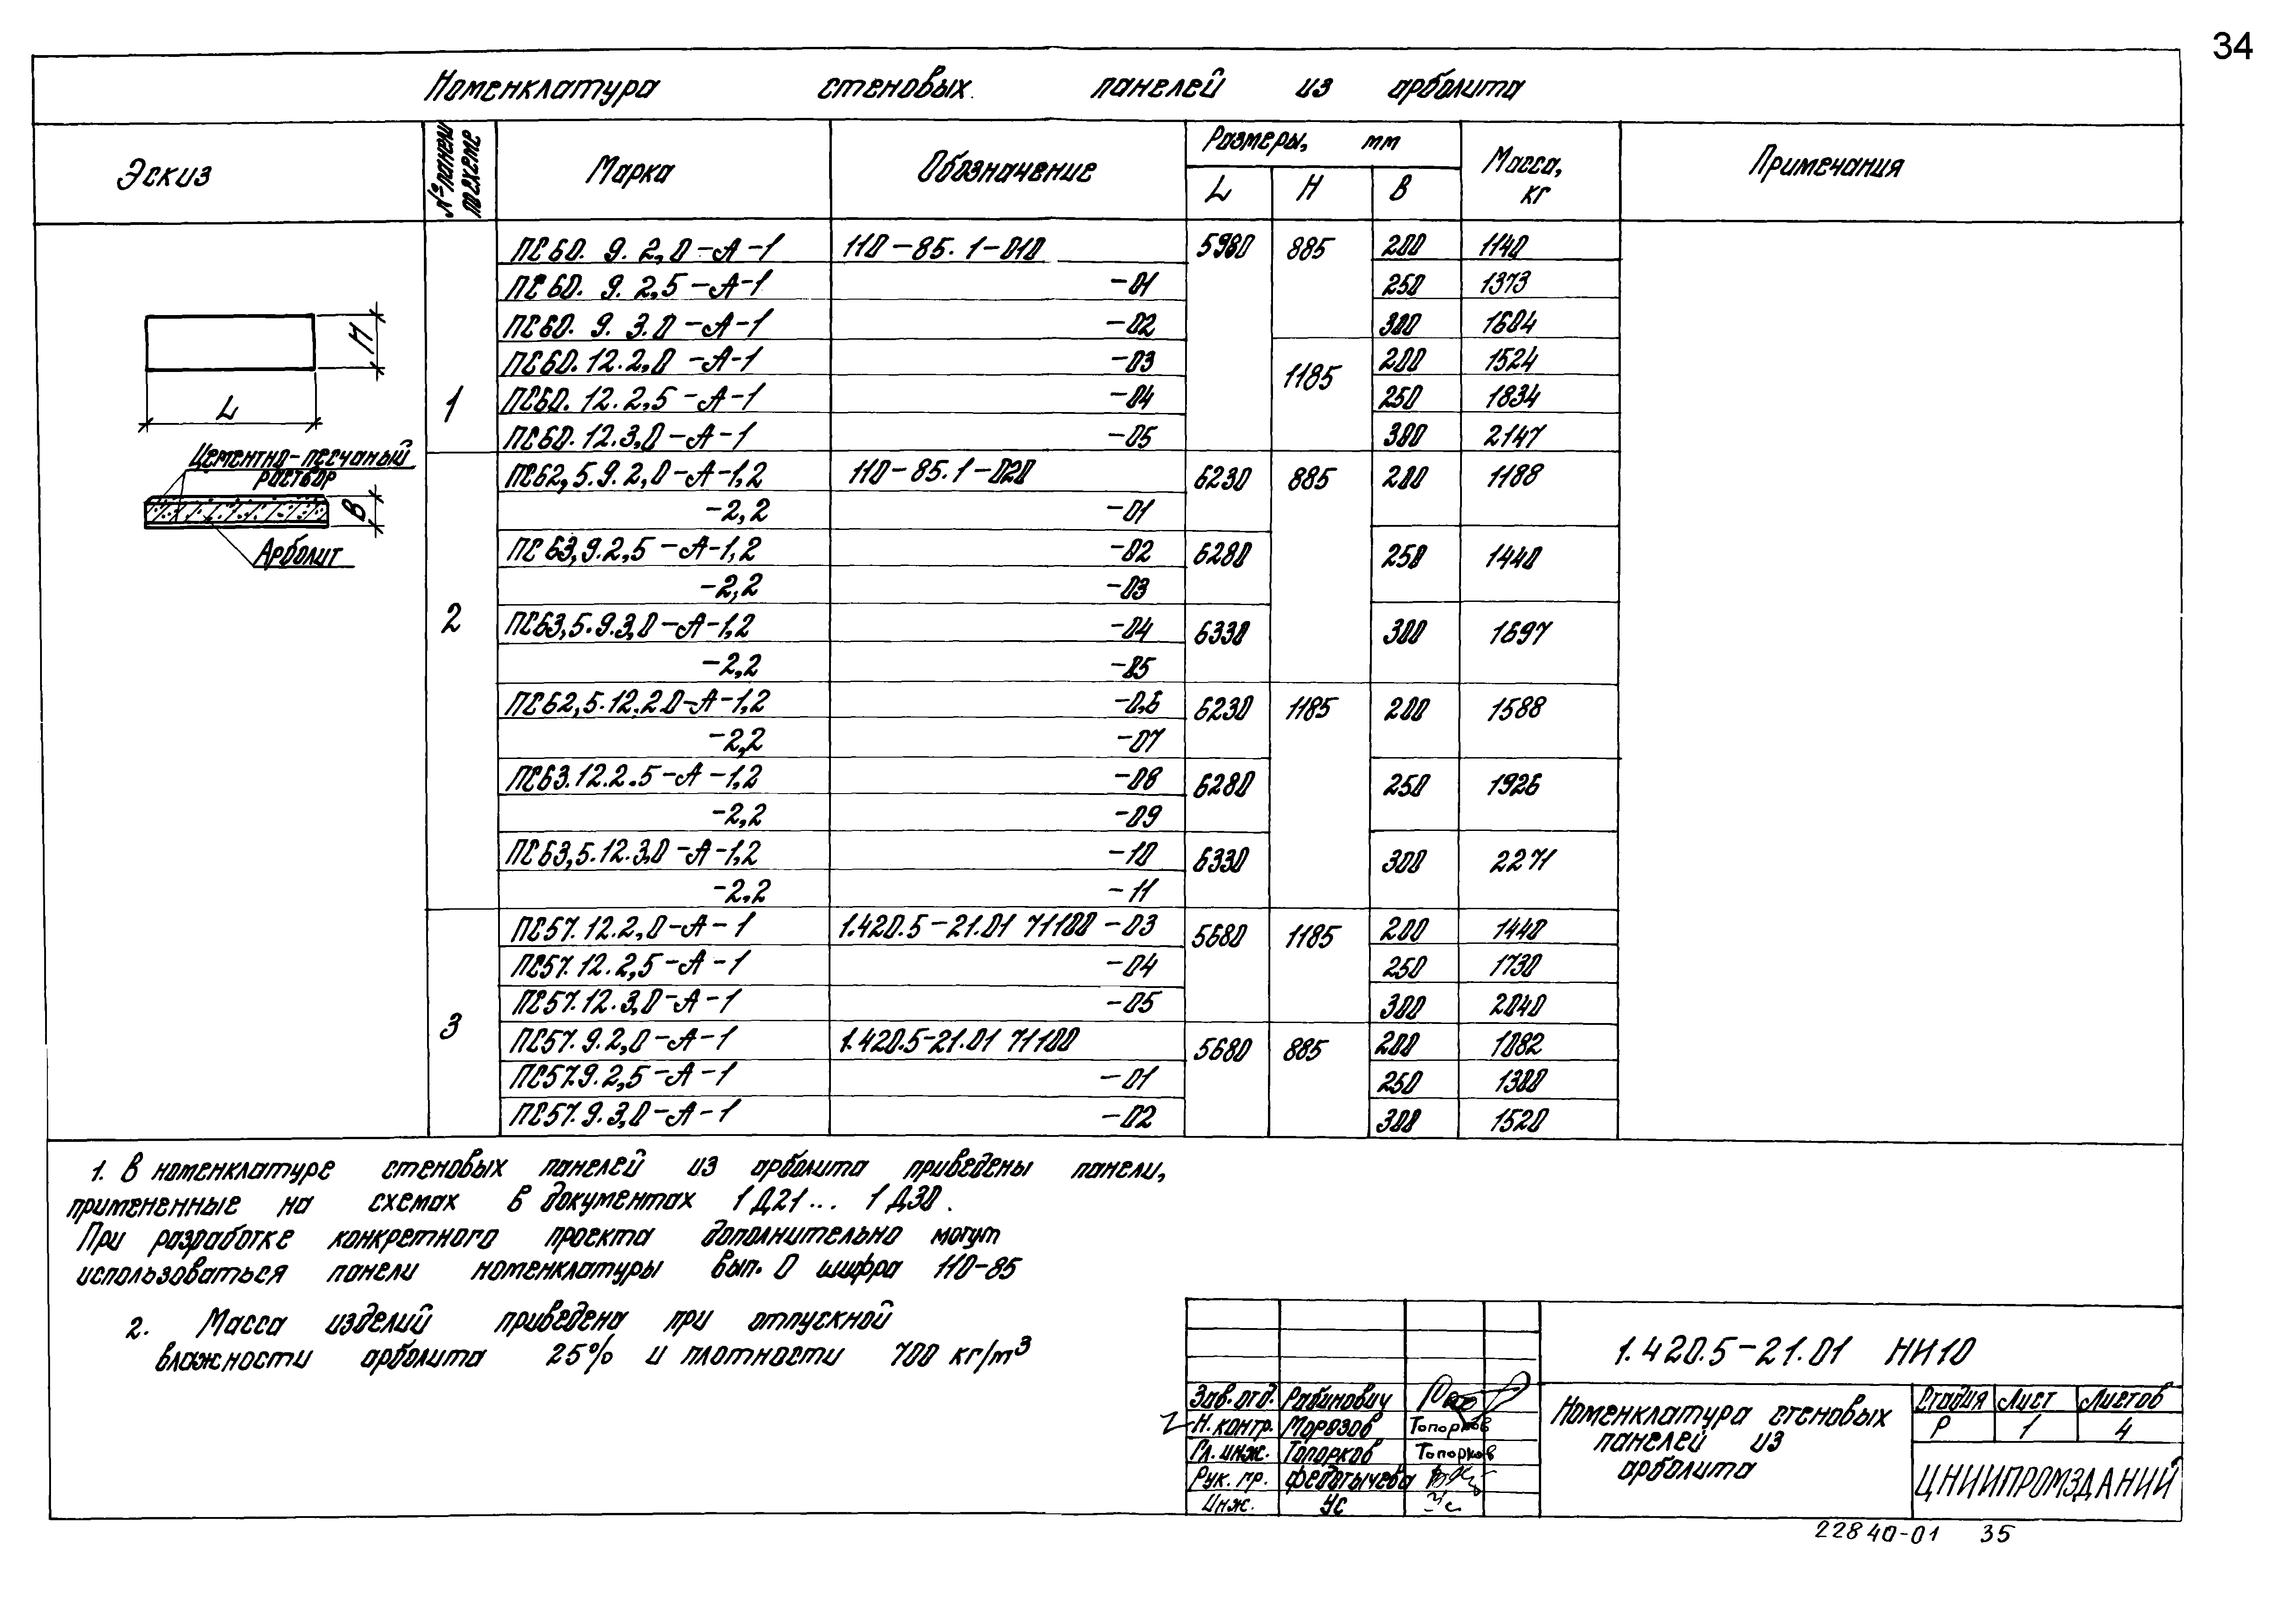 34
Номенклатура стеновых панелей из арболита
Эскиз
№ панели по схеме
Марка
Обозначение
Размеры, мм
L H B
Масса, кг
Примечания
H
L
Цементно-песчаный
раствор
B
Арболит
1
ПС60. 9. 2,0-А-1 110-85. 1-010 5980 885 200 1140
ПС60. 9. 2,5-А-1 -01 250 1373
ПС60. 9. 3.0-А-1 -02 300 1604
ПС60. 12. 2,0-А-1 -03 1185 200 1524
ПС60. 12. 2,5-А-1 -04 250 1834
ПС60. 12. 3,0-А-1 -05 300 2147
2
ПС62,5. 9. 2,0-А-1,2 110-85. 1-020 6230 885 200 1188
-2,2 -01
ПС63,9. 2,5-А-1,2 -02 6280 250 1440
-2,2 -03
ПС63,5. 9. 3,0-А-1,2 -04 6330 300 1697
-2,2 -05
ПС62,5. 12. 2.0-А-1,2 -0,6 6230 1185 200 1588
-2,2 -07
ПС63. 12. 2.5-А-1,2 -08 6280 250 1926
-2,2 -09
ПС63,5. 12. 3,0-А-1,2 -10 6330 300 2271
-2,2 -11
3
ПС57. 12. 2,0-А-1 1.420.5-21.01 71100 -03 5680 1185 200 1440
ПС57. 12. 2,5-А-1 -04 250 1730
ПС57. 12. 3,0-А-1 -05 300 2040
ПС57. 9. 2,0-А-1 1.420.5-21.01 71100 5680 885 200 1082
ПС57.9. 2,5-А-1 -01 250 1300
ПС57. 9. 3,0-А-1 -02 300 1520
1. В номенклатуре стеновых панелей из арболита приведены панели,
примененные на схемах в документах 1Д21... 1Д30.
При разработке конкретного проекта дополнительно могут
использоваться панели номенклатуры вып. 0 шифра 110-85
2. Масса изделий приведена при отпускной
влажности арболита 25% и плотности 700 кг/м³
1.420.5-21.01 НИ10
Зав.отд. Рабинович
Н.контр. Морозов Топорков
Гл.инж. Топорков Топорков
Рук. гр. Федотычева
Инж. Ус
Номенклатура стеновых
панелей из
арболита
Стадия Лист Листов
Р 1 4
ЦНИИПРОМЗДАНИЙ
22840-01 35